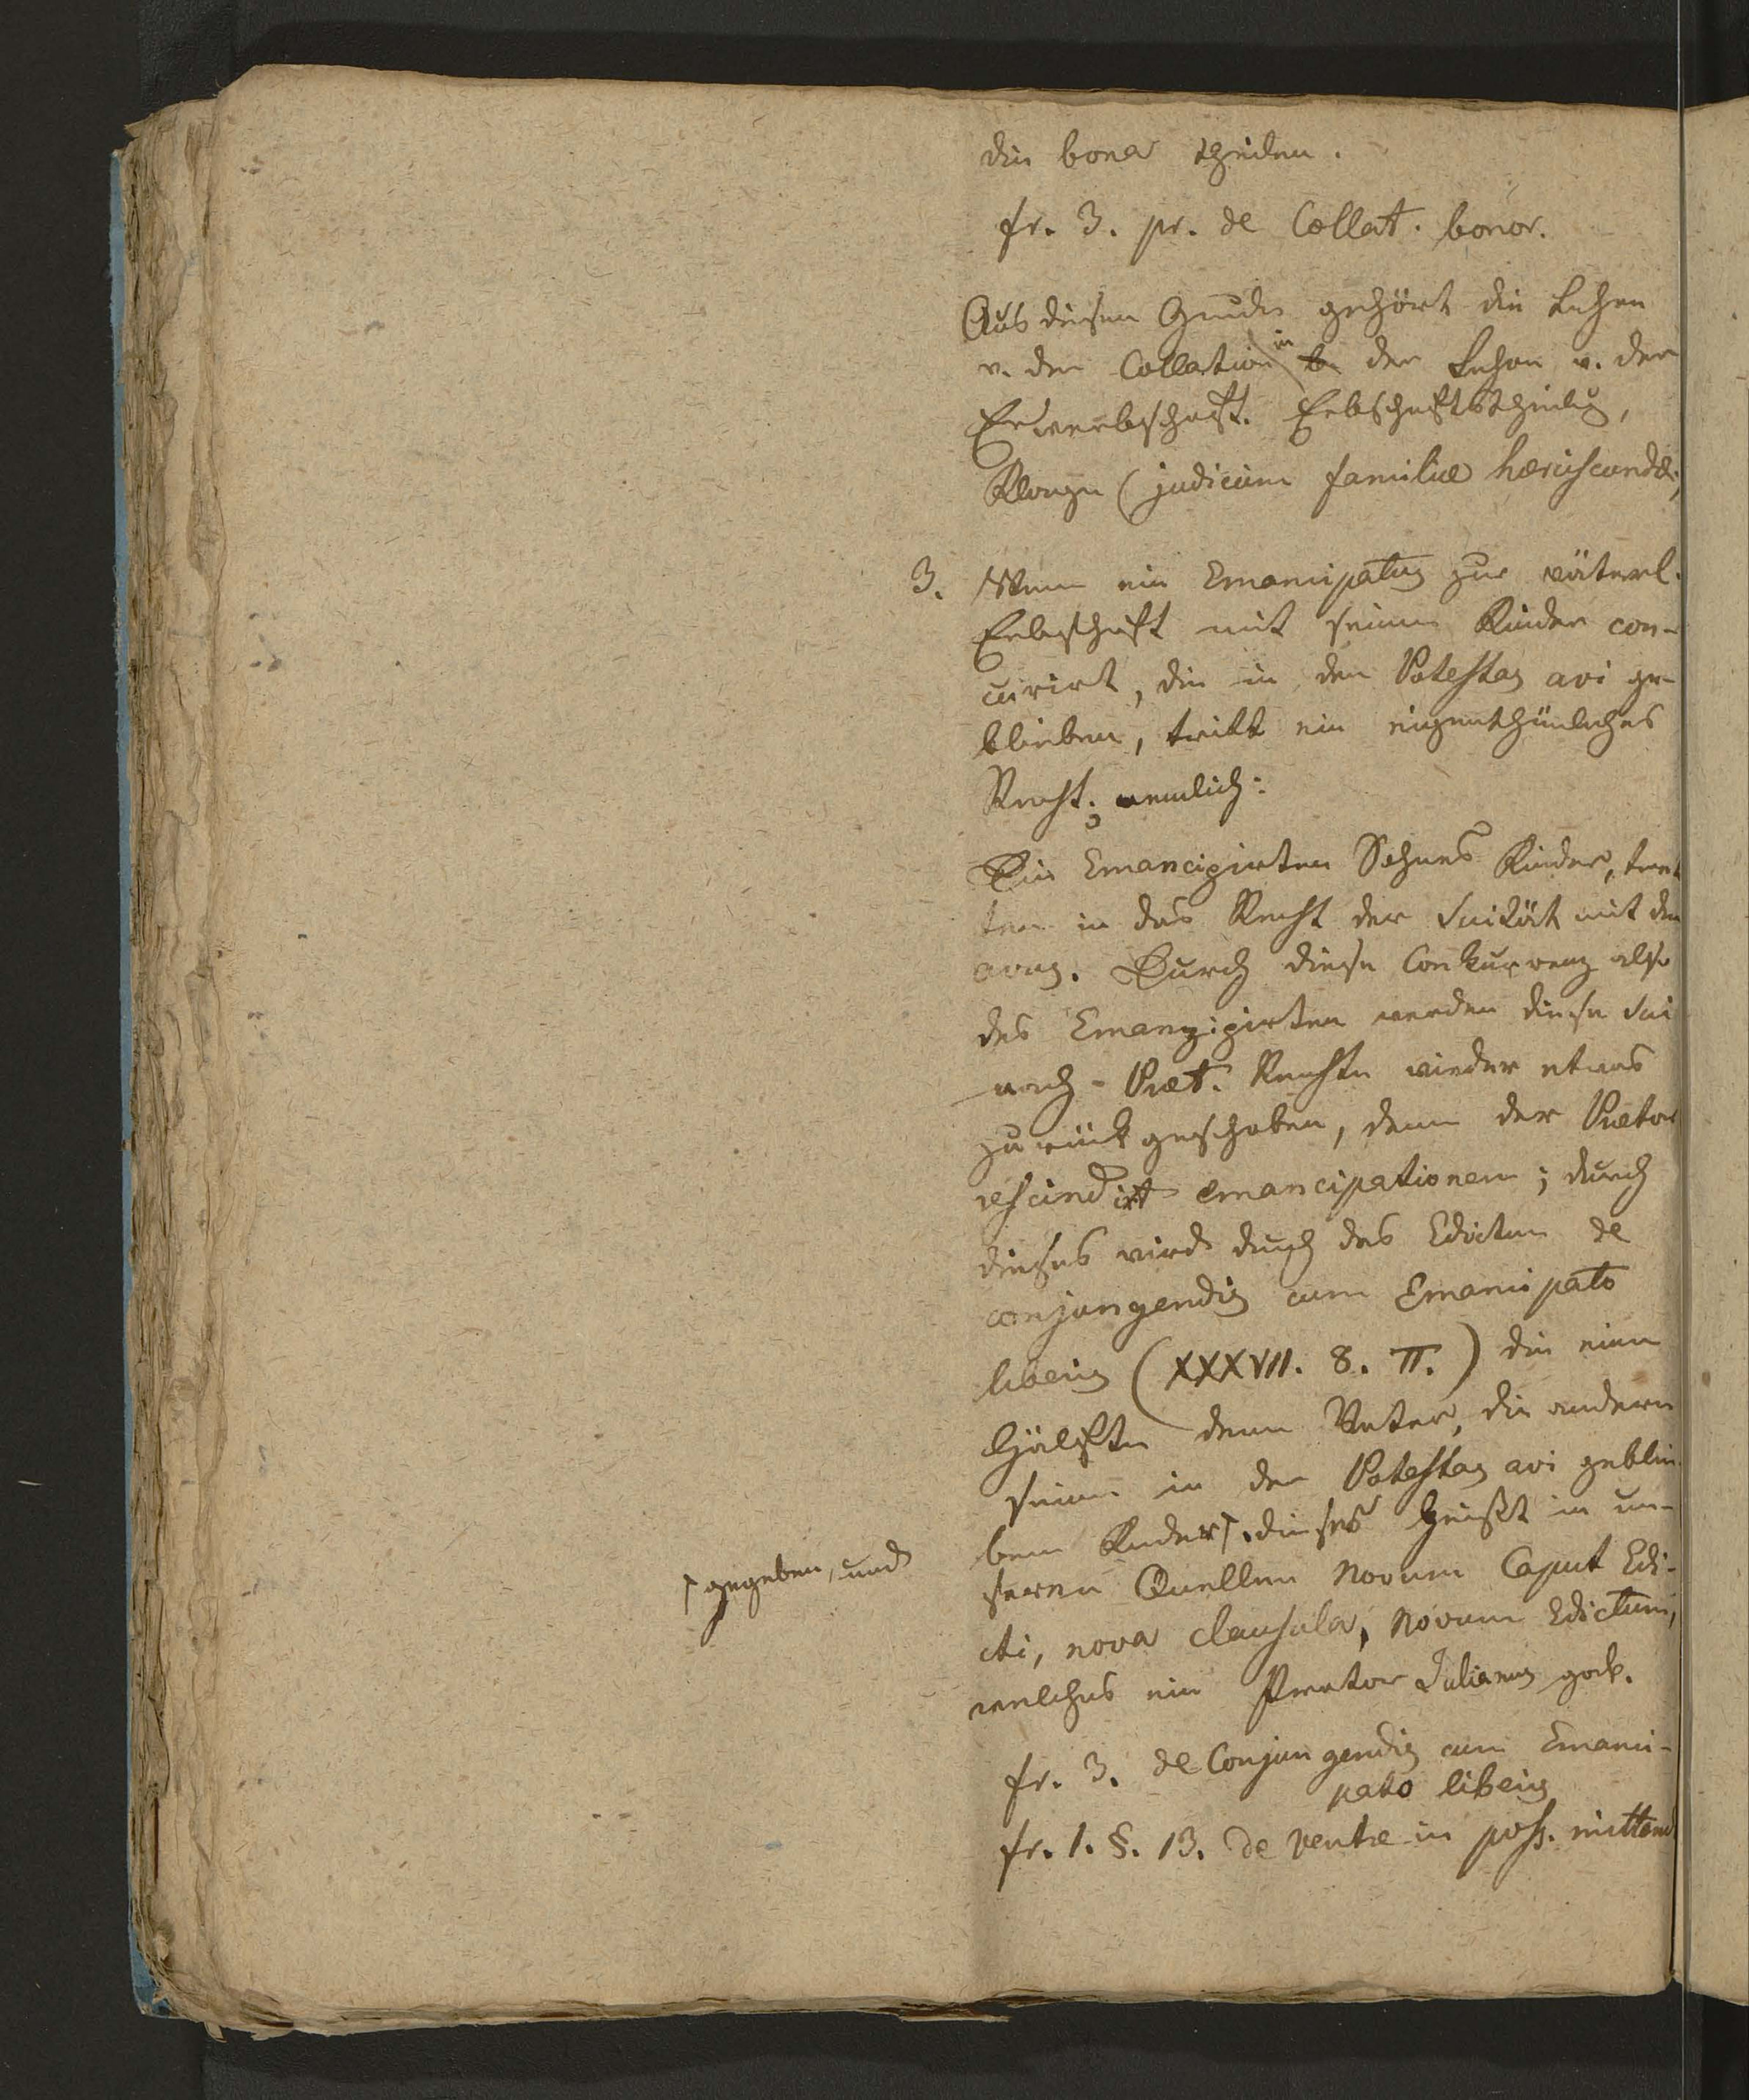 die bona theilen.
fr. 3. pr. de Collat. bonor.
Aus diesem Grunde gehört die Lehre
v. der Collation in der Lehre v. der
Erbschaftstheilg,
Klage (judicium familiæ herciscundæ,
3. Wenn ein Emancipatus zur väterl.
Erbschaft mit seinen Kinder con-
currirt, die in der Potestas avi ge-
blieben, tritt ein eigenthümliches
Recht; nemlich:
Die Emancipirten Sohnes Kinder, tret
ten in das Recht der Suität mit dem
avus. Durch diese Conkurrenz also
des Emanzipirten werden diese Sui
nach Præt. Rechte wieder etwas
zurückgeschoben, denn der Prætor
rescindirt emancipationem; durch
dieses wird durch das Edictum de
conjungendis cum Emancipato
liberis (XXXVII. 8. π.) die eine
Hälfte dem Vater, die andere
seinen in der Potestas avi geblie-
benen Kinder ⌈. dieses heißt in un-
⌈ gegeben, und
seren Quellen Novum Caput Edi-
cti, nova clausula, Novum Edictum,
welches ein Praetor Julianus gab.
fr. 3. de Conjungendis cum Emanci-
pato liberis
fr. 1. §. 13. de Ventre in poss. mittend